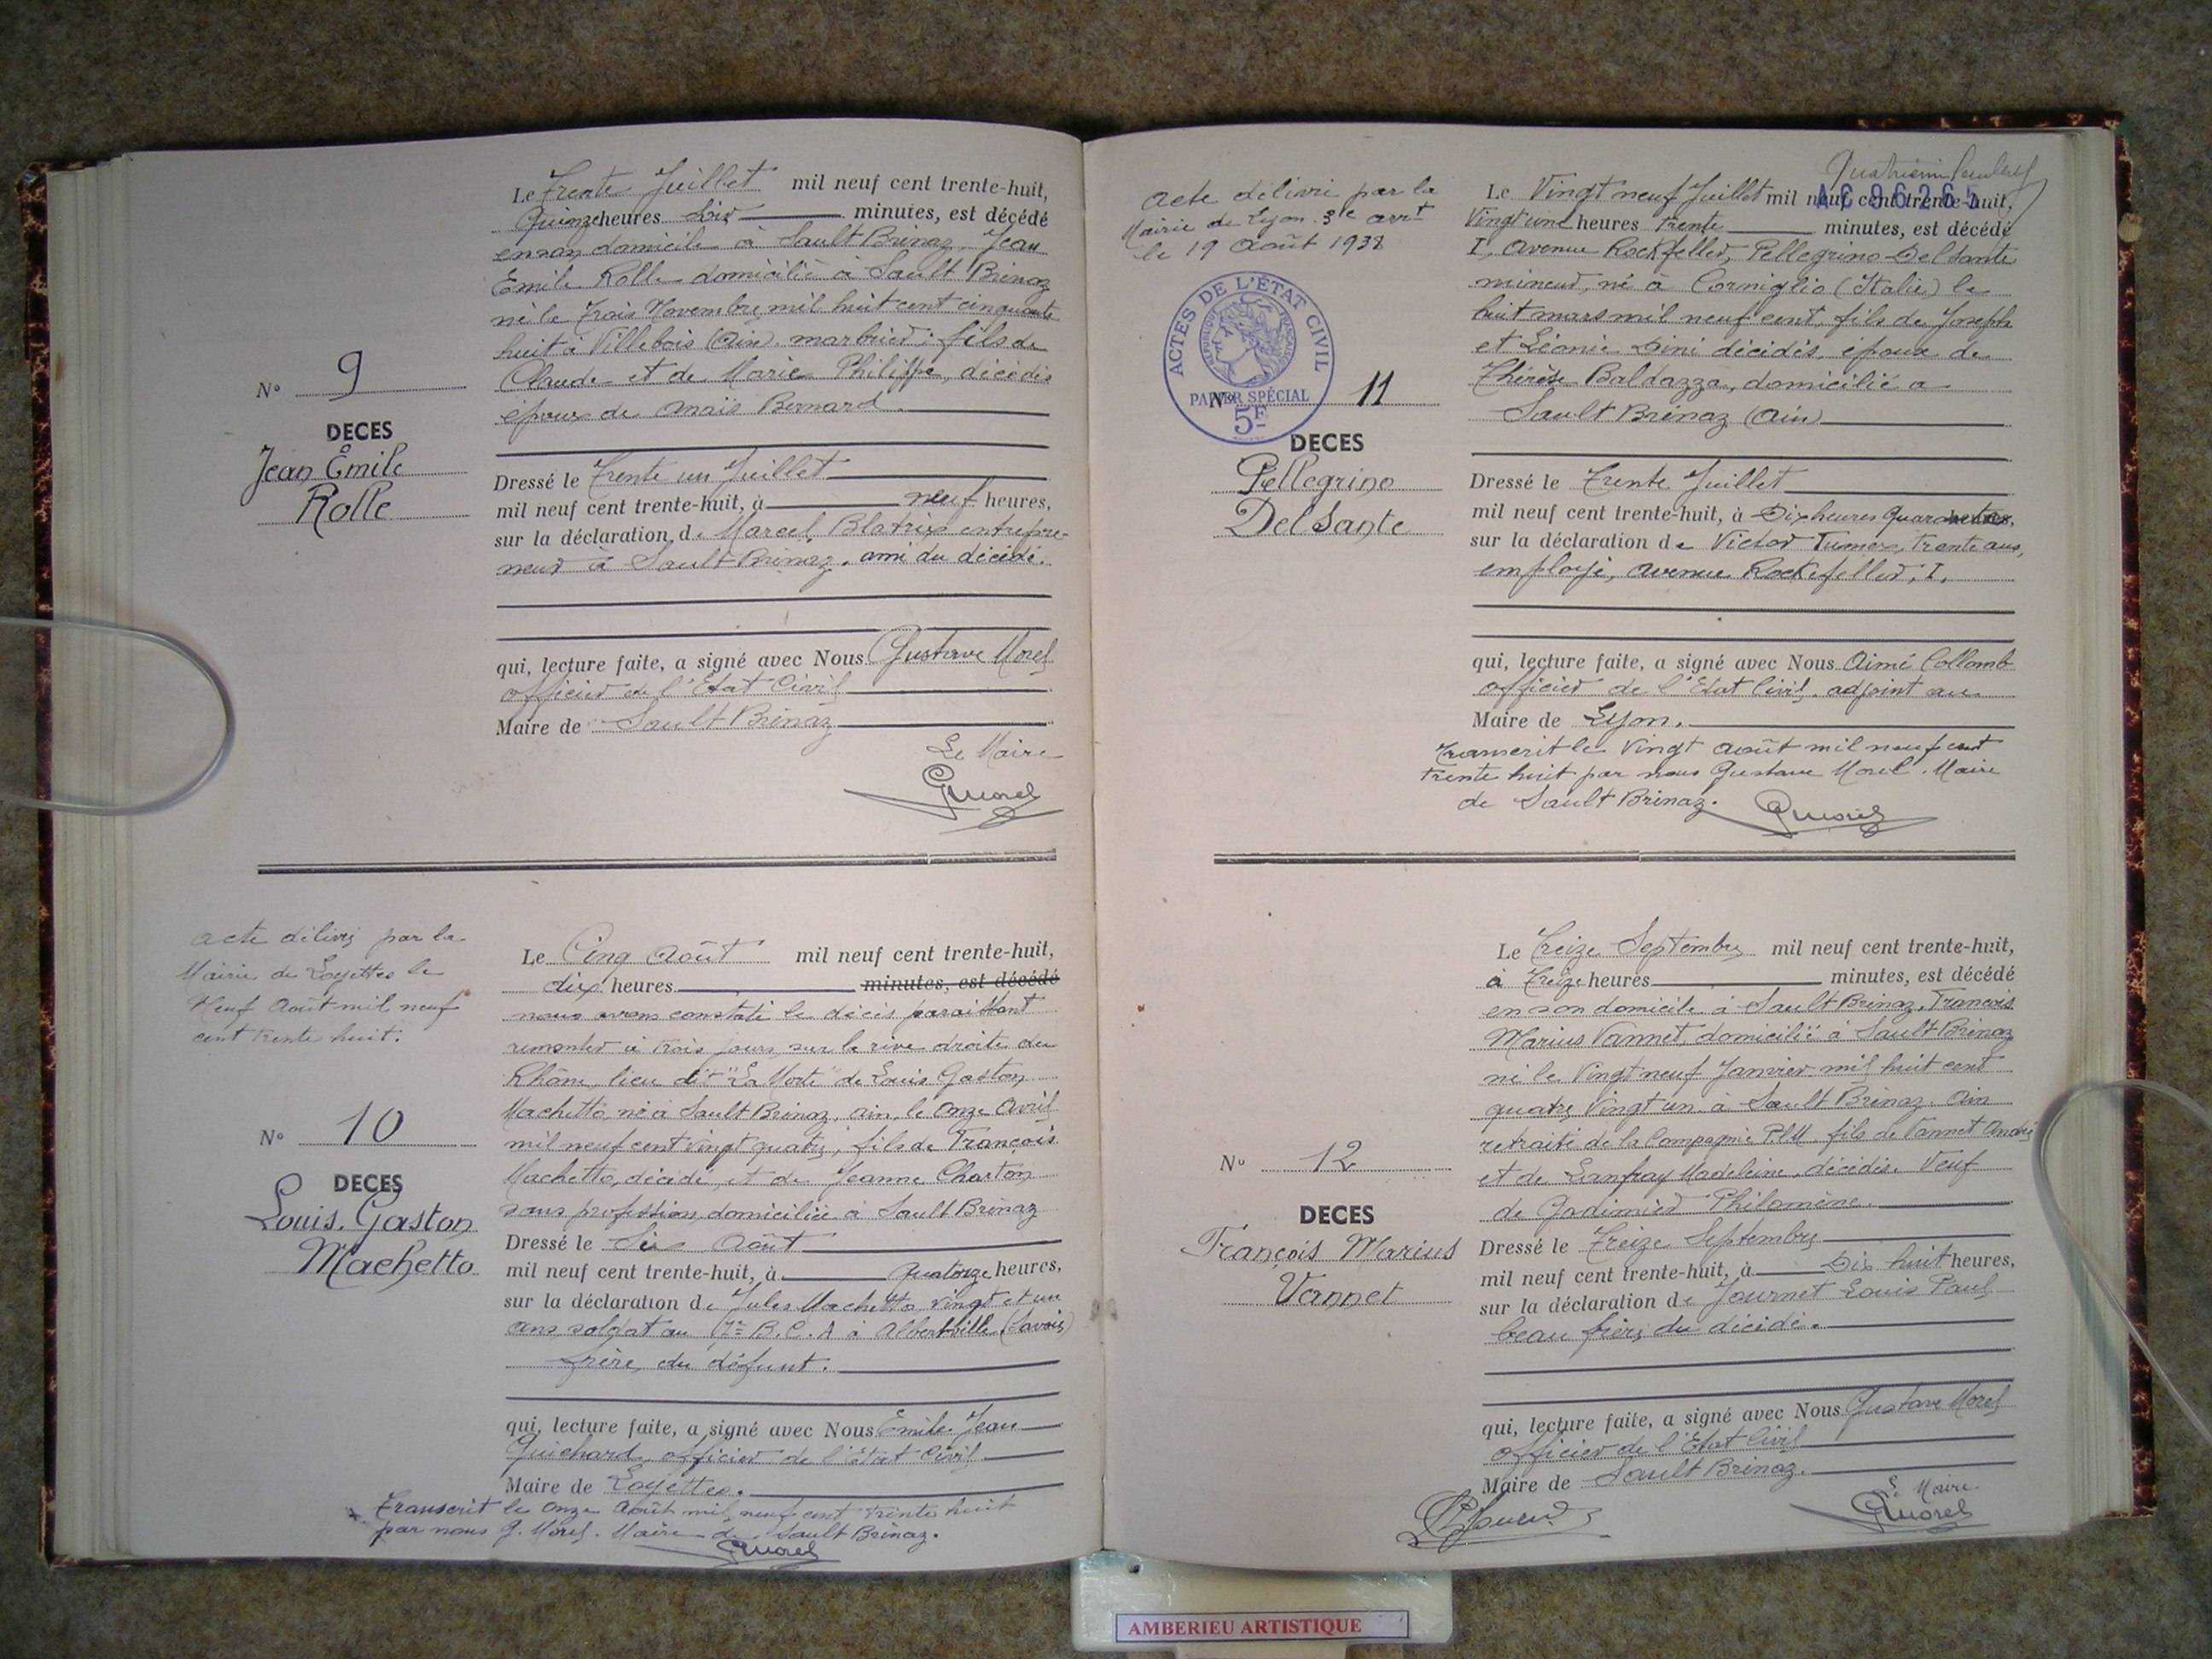 Le Trente Juillet mil neuf cent trente-huit,
Quinze heures dix minutes, est décédé
en son domicile à Sault Brénaz, Jean
Emile Rolle domicilié à Sault Brénaz
né le Trois Novembre mil huit cent cinquante
huit à Villebois (Ain). marbrier; fils de
Claude et de Marie Philippe, décédés
époux de Anaïs Bernard.
N° 9
DECES
Jean Emile
Rolle
Dressé le Trente un Juillet
mil neuf cent trente-huit, à neuf heures,
sur la déclaration de Marcel Blatrix entrepre-
neur à Sault-Brénaz, ami du décédé.
qui, lecture faite, a signé avec Nous Gustave Morel
officier de l'Etat Civil
Maire de Sault Brénaz
Le Maire
GMorel
acte délivré par la
Mairie de Loyettes le
Neuf Août mil neuf
cent trente huit.
Le Cinq Août mil neuf cent trente-huit,
dix heures minutes, est décédé
nous avons constaté le décès paraissant
remonter à trois jours, sur la rive droite du
Rhône, lieu dit "La Morte" de Louis Gaston
Machetto, né à Sault Brénaz, ain, le onze Avril
mil neuf cent vingt quatre, fils de François
Machetto, décédé, et de Jeanne Charton
sans profession, domiciliée à Sault Brénaz
N° 10
DECES
Louis. Gaston
Machetto
Dressé le Six Août
mil neuf cent trente-huit, à quatorze heures,
sur la déclaration de Jules Machetto, vingt et un
ans soldat au B.C.A à Albertville (Savoie)
frère du défunt.
qui, lecture faite, a signé avec Nous Emile Jean
Guichard, officier de l'état Civil
Maire de Loyettes.
Transcrit le onze Août mil neuf cent trente huit
par nous G. Morel. Maire de Sault Brénaz.
GMorel
acte délivré par la
Mairie de Lyon. 3e arrt
le 19 Août 1938
ACTES DE L'ÉTAT CIVIL
RÉPUBLIQUE FRANÇAISE
PAPIER SPÉCIAL
5F
AC 96265
Le Vingt neuf Juillet mil neuf cent trente-huit,
Vingt une heures Trente minutes, est décédé
I, avenue Rockfeller, Pellegrino Delsante
mineur, né à Corniglio (Italie) le
huit mars mil neuf cent, fils de Joseph
et Léonie Dini décédés, époux de
Thérèse Baldazza, domicilié à
Sault Brénaz (Ain)
N° 11
DECES
Pellegrino
Delsante
Dressé le Trente Juillet
mil neuf cent trente-huit, à Dix heures Quarante
sur la déclaration de Victor Tumer, Trente ans,
employé, avenue Rockefeller, I.
qui, lecture faite, a signé avec Nous Aimé Collomb
officier de l'Etat Civil, adjoint au
Maire de Lyon.
Transcrit le Vingt août mil neuf cent
trente huit par nous Gustave Morel. Maire
de Sault Brénaz. GMorel
Le Treize Septembre mil neuf cent trente-huit,
à Treize heures minutes, est décédé
en son domicile à Sault Brénaz, François
Marius Vannet, domicilié à Sault Brénaz
né le Vingt neuf Janvier mil huit cent
quatre Vingt un à Sault Brénaz. Ain
retraité de la Compagnie PLM fils de Vannet André
et de Lanfray Madeleine, décédés. Veuf
de Gadimier Philomène.
N° 12
DECES
François Marius
Vannet
Dressé le Treize Septembre
mil neuf cent trente-huit, à Dix huit heures,
sur la déclaration de Journet Louis Paul
beau frère du décédé.
qui, lecture faite, a signé avec Nous Gustave Morel
officier de l'Etat Civil
Maire de Sault Brénaz.
Le Maire
GMorel
AMBERIEU ARTISTIQUE